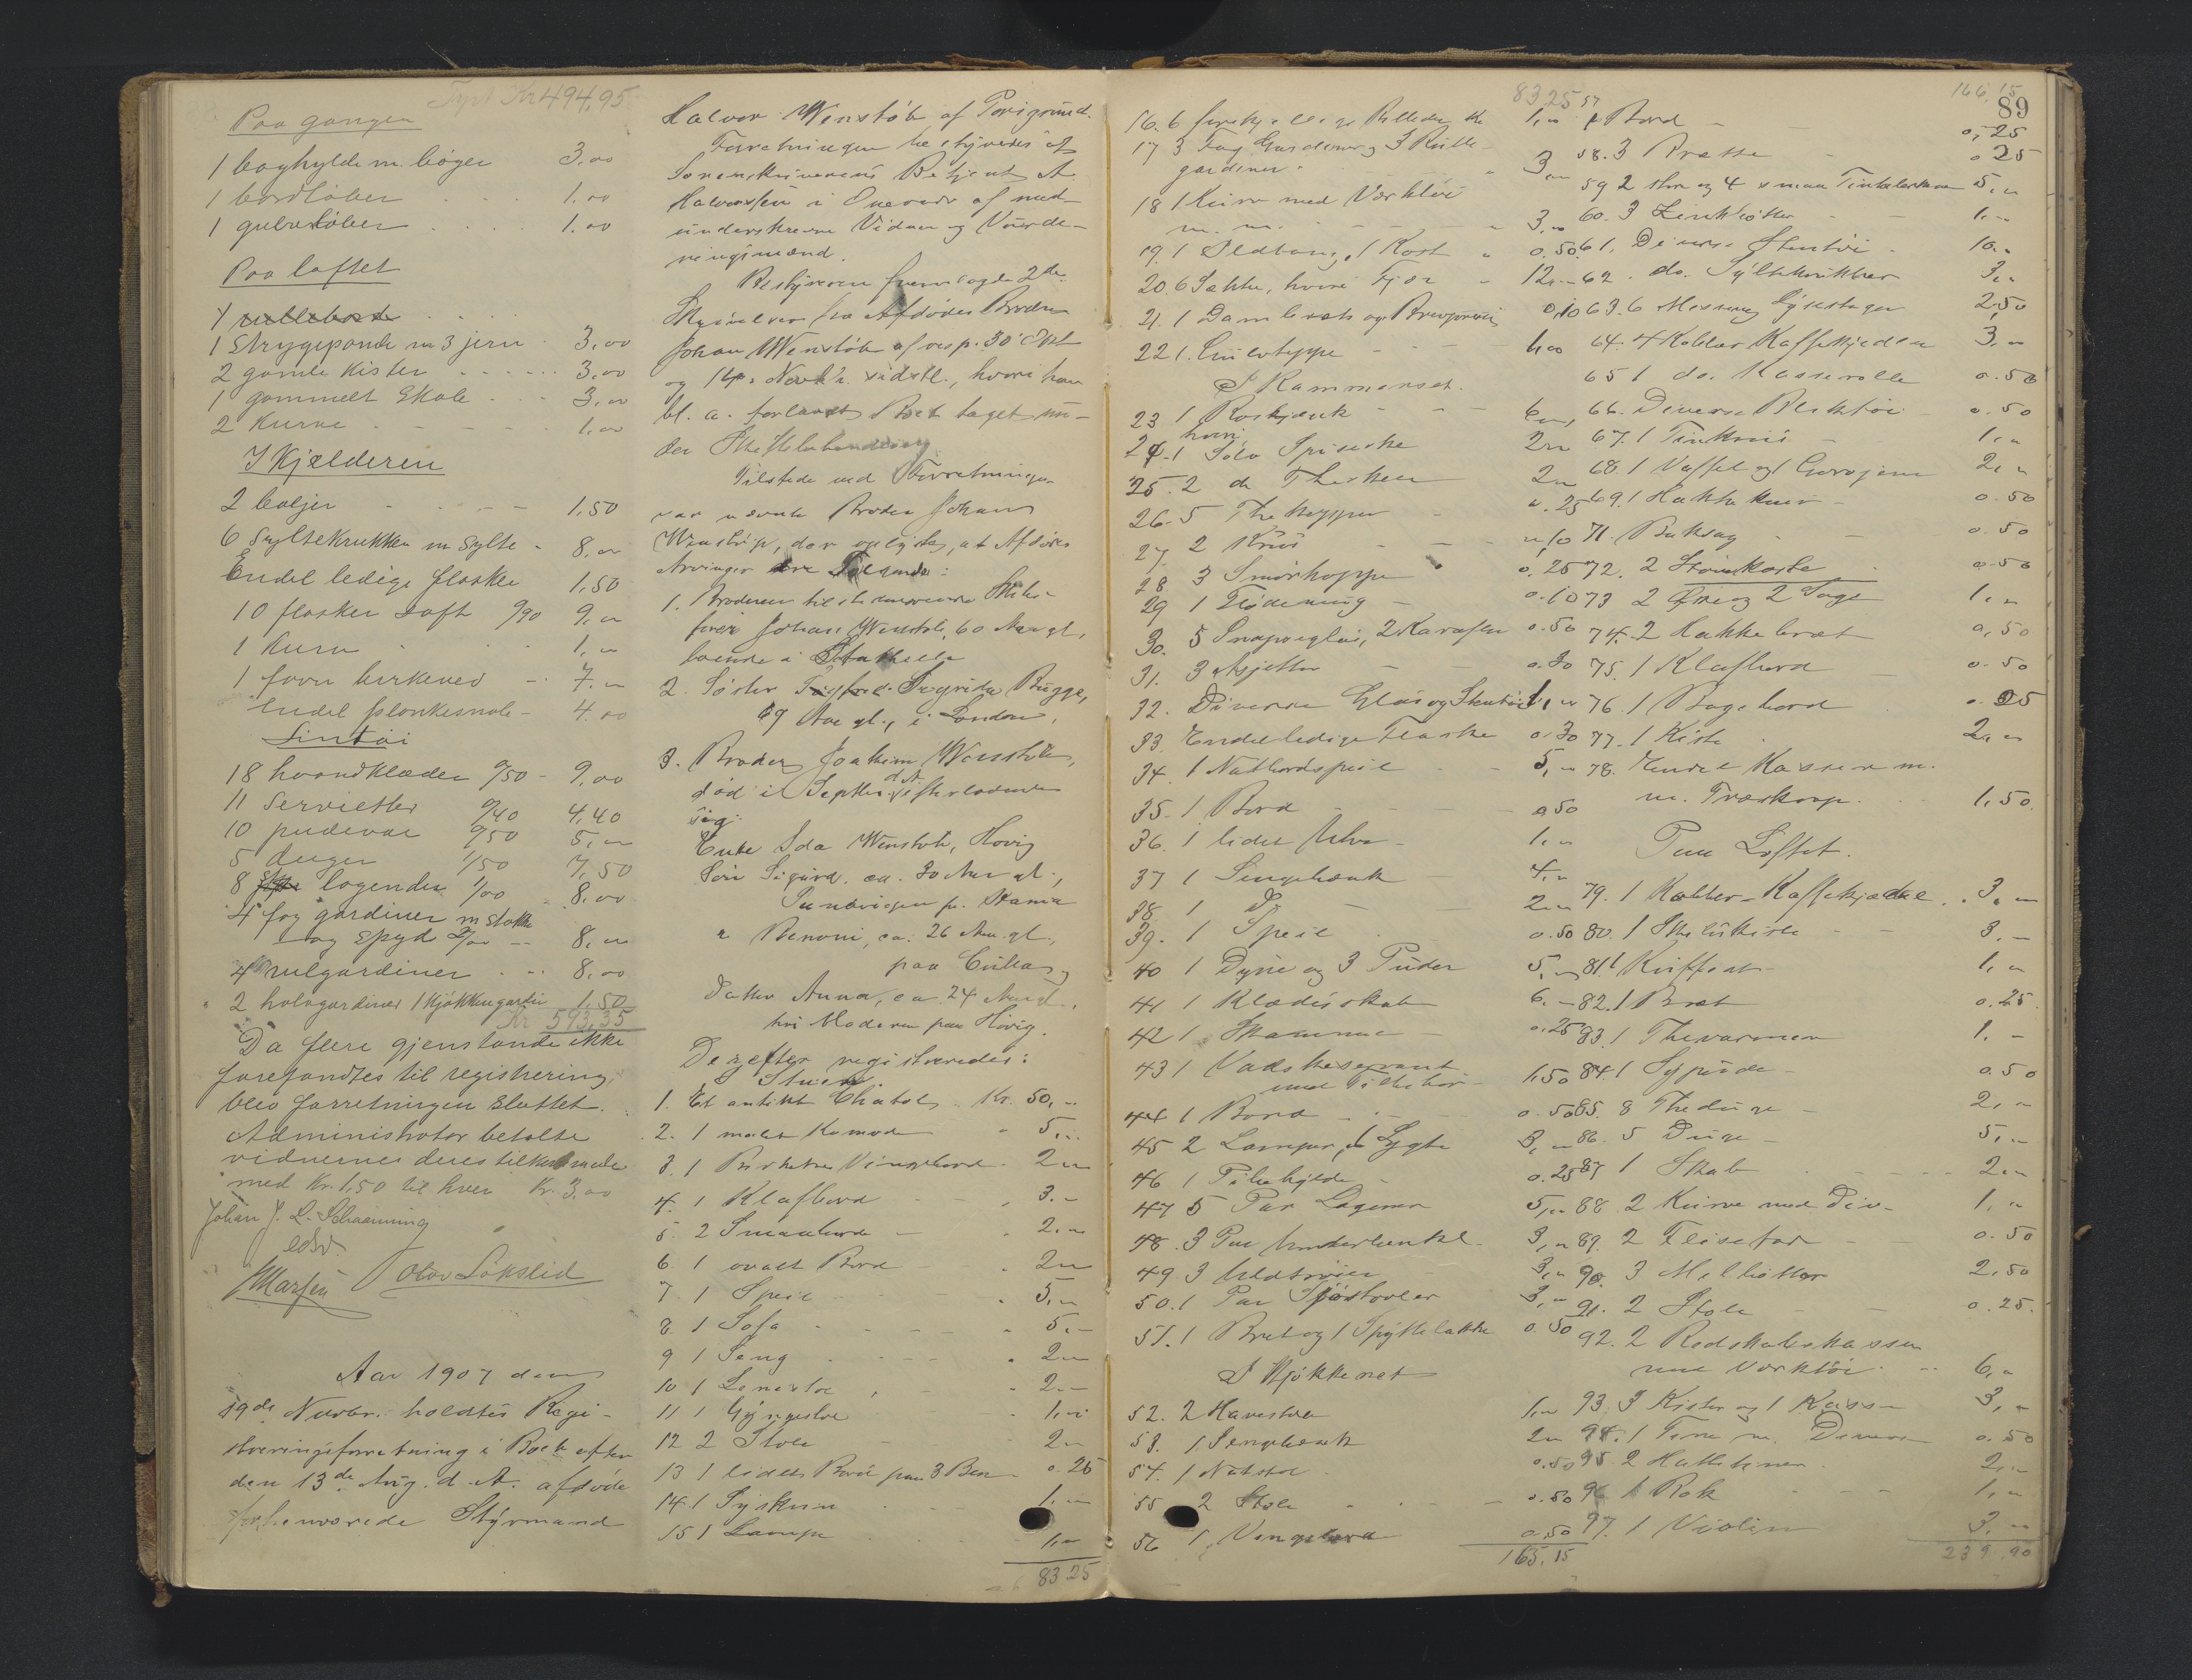 Kr 494,95
Paa gangen
1 boghylde m. bøger 3,00
1 bordløber 1.00
1 gulvløber 1.00
Paa loftet
1 rullebord
1 Strygepande m 3 jern 3,00
2 gamle Kister 3,00
1 gammelt Skab 3,00
2 Kurve 1,00
I Kjælderen
2 baljer 1,50
6 Syltekrukker m Sylte 8,00
Endel ledige flasker 1,50
10 flasker Saft 0/90 9,00
1 Kurv 1,00
1 favn birkeved 7.00
Endel plankesmale 4.00
Lintøi
18 haandklæder 0/50 9,00
11 Servietter 0/40 4,40
10 pudevar 0/50 5,00
5 duger 1/50 7,50
8 lagender 1/00 8,00
4 fag gardiner m stokke
og Spyd 2/00 8,00
4 rulgardiner 8,00
2 halvgardiner 1 kjøkkengardin 1,50
Kr 593,35
Da flere gjenstande ikke
forefandtes til registrering,
blev forretningen sluttet.
Administrator betalte
vidnerne deres tilkommende
med Kr. 1,50 til hver Kr. 3,00
Johan J. L. Schaanning
edsv.
Olav Lökslid
Aar 1907 den
19de Novbr. holdtes Regi-
streringsforretning i Boet efter
den 13de Aug. d. A. afdøde
forhenværende Styrmand
Halvor Wenstøb af Porsgrund.
Forretningen bestyredes af
Sorenskriverens Betjent A.
Halvorsen i Overvær af med-
underskrevne Vidner og Vurde-
ringsmænd.
Bestyreren fremlagde 2de
Skrivelser fra Afdødes Broder
Johan Wenstøb af resp. 30 Okt
og 14 Novbr. sidstl., hvori han
bl. a. forlangte Boet taget un-
der Skiftebehandling
Tilstede ved Forretningen
var nævnte Broder Johan
Wenstøp, der oplyste, at Afdødes
Arvinger ere Følgende:
1. Broderen tilstedeværende Skibs-
fører Johan Wenstøb, 60 Aar gl.,
boende i Stathelle
2. Søster Sigride Bugge,
69 Aar gl., i London,
3. Broder Joakim Wenstøb,
død i Septbr. d. A. efterladende
sig:
Enke Ida Wenstøb, Høvig
Søn Sigurd, ca. 30 Aar gl.,
" Benoni, ca. 26 Aar gl.,
paa Cuba og
Datter Anna, ca 24 Aar gl.,
hos Moderen paa Høvig.
Derefter registreredes:
I Stuen.
1. Et antikt Chatol Kr. 50,00
2. 1 malet Komode 5,00
3. 1 Birketræ Vingebord 2,00
4. 1 Klafbord 3.00
5. 2 Smaaborde 2,00
6. 1 ovalt Bord 2,00
7. 1 Speil 5,00
8. 1 Sofa 5,00
9 1 Seng 2,00
10 1 Lænestol 2,00
11 1 Gyngestol 1,00
12 2 Stole 2,00
13 1 lidet Bord paa 3 Ben 0.25
14. 1 Syskrin 1,00
15 1 Lampe 1,00
83.25
83.25
16. 6 forskjellige Billeder Kr 1,00
17 3 Fag Gardiner og 3 Rulle-
gardiner 3,00
18 1 Kurv med Værktøi
m. m. 3,00
19. 1 Ildtang, 1 Kost 0.50
20. 6 Sække, hvori Fjær 12,00
21. 1 Dambræt og Brevpresse 0,10
22 1 Gulvteppe 1,00
I Kammerset.
23 1 Kaskjænk 6,00
24. 1 Sølv Spiseske 2,00
25. 2 do Theskeer 2,00
26. 5 Thekopper 0.25
27. 2 Krus 0,10
28 3 Smørkopper 0,25
29 1 Flødemug 0.10
30. 5 Snapseglas, 2 Karafler 0.50
31. 3 Asjetter 0.30
32. Diverse Glas og Stentøi 1,00
33. Endel ledige Flasker 0.30
34. 1 Natbordspeil 5,00
35. 1 Bord 0.50
36. 1 lidet Uhr 1,00
37 1 Sengebænk 4,00
38. 1 Do 2,00
39. 1 Speil 0.50
40 1 Dyne og 3 Puder 5,00
41 1 Klædesskab 6.00
42 1 Skammel 0.25
43 1 Vaskeservant
med Tilbehør 1,50
44 1 Bord 0.50
45 2 Lamper, 1 Lygte 3,00
46 1 Pibehylde 0.25
47 5 Par Lagener 5,00
48. 3 Par Underbenkl. 3,00
49 3 Uldtrøier 3,00
50. 1 Par Sjøstøvler 3,00
51. 1 Bret og 1 Spyttebakke 0.50
I Kjøkkenet
52. 2 Havestole 1,00
53. 1 Sengebænk 2,00
54. 1 Natstol 0.50
55 2 Stole 0.50
56 1 Vingebord 0.50
165,15
166,15
89
57 1 Bord 0,25
58. 3 Brætte 0.25
59 2 store og 4 smaa Tintallerkener 5,00
60. 3 Zinkbøtter 1,00
61. Diverse Stentøi 10.00
62. do. Syltekrukker 3,00
63. 6 Messing Lysestager 2,50
64. 4 Kobber Kaffekjedler 3,00
65 1 do. Kasserolle 0.50
66. Diverse Bliktøi 0.50
67. 1 Tinkrus 1,00
68. 1 Vaffel og 1 Gorojern 2,00
69. 1 Hakkekniv 0.50
71. Buksag 0.50
72. 2 Støvekoste 0.50
73 2 Øxe og 2 Sage 1,00
74. 2 Hakkebræt 0,50
75. 1 Klafbord 0.50
76. 1 Bagebord 0.25
77. 1 Kiste 2,00
78. Endel Kasser m.
m. Træskrap. 1,50
Paa Loftet.
79. 1 Kobber-Kaffekjedel 3,00
80. 1 Skibskiste 3.00
81 1 Kuffert 1,00
82. 1 Bræt 0.25
83. 1 Thevarmer 1.00
84. 1 Sypude 0.50
85. 8 Theduge 2,00
86. 5 Duge 5,00
87 1 Skab 2,00
88. 2 Kurve med Div. 1,00
89. 2 Flisefad 0.50
90. 3 Melbøtter 2,50
91. 2 Stole 0.25
92. 2 Redskabskasser
med Værktøi 6,00
93. 3 Kister og 1 Kasse 3,00
94. 1 Tine m. Diverse 0.50
95. 2 1,00
96. 1 Rok 1,00
97. 1 Violin 3,00
239,90